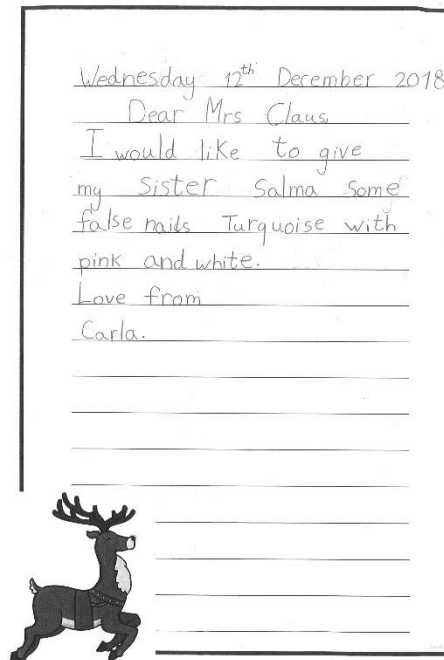 Wednesday 12th December 2018
Dear Mrs Claus,
I would like to give
my sister Salma some
false nails Turquoise with
pink and white.
Love from
Carla.